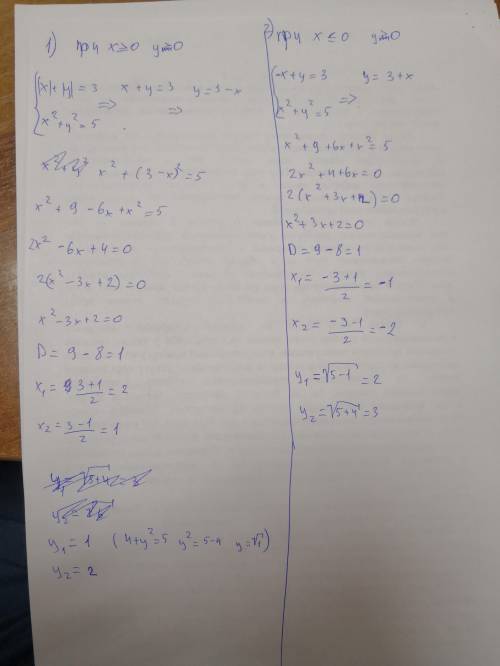 1) при x≥0 y≥0
{|x|+|y|=3 ⇒ x+y=3 ⇒ y=3-x
x²+y²=5
x²+(3-x)²=5
x²+9-6x+x²=5
2x²-6x+4=0
2(x²-3x+2)=0
x²-3x+2=0
D=9-8=1
x₁= 3+1/2 =2
x₂= 3-1/2 =1
y₁=1 (4+y²=5 y²=5-4 y=√1)
y₂=2
2) при x≤0 y≥0
{-x+y=3 y=3+x
x²+y²=5 ⇒
x²+9+6x+x²=5
2x²+4+6x=0
2(x²+3x+2)=0
x²+3x+2=0
D=9-8=1
x₁= -3+1/2 =-1
x₂= -3-1/2 =-2
y₁=√5-1=2
y₂=√5+4=3